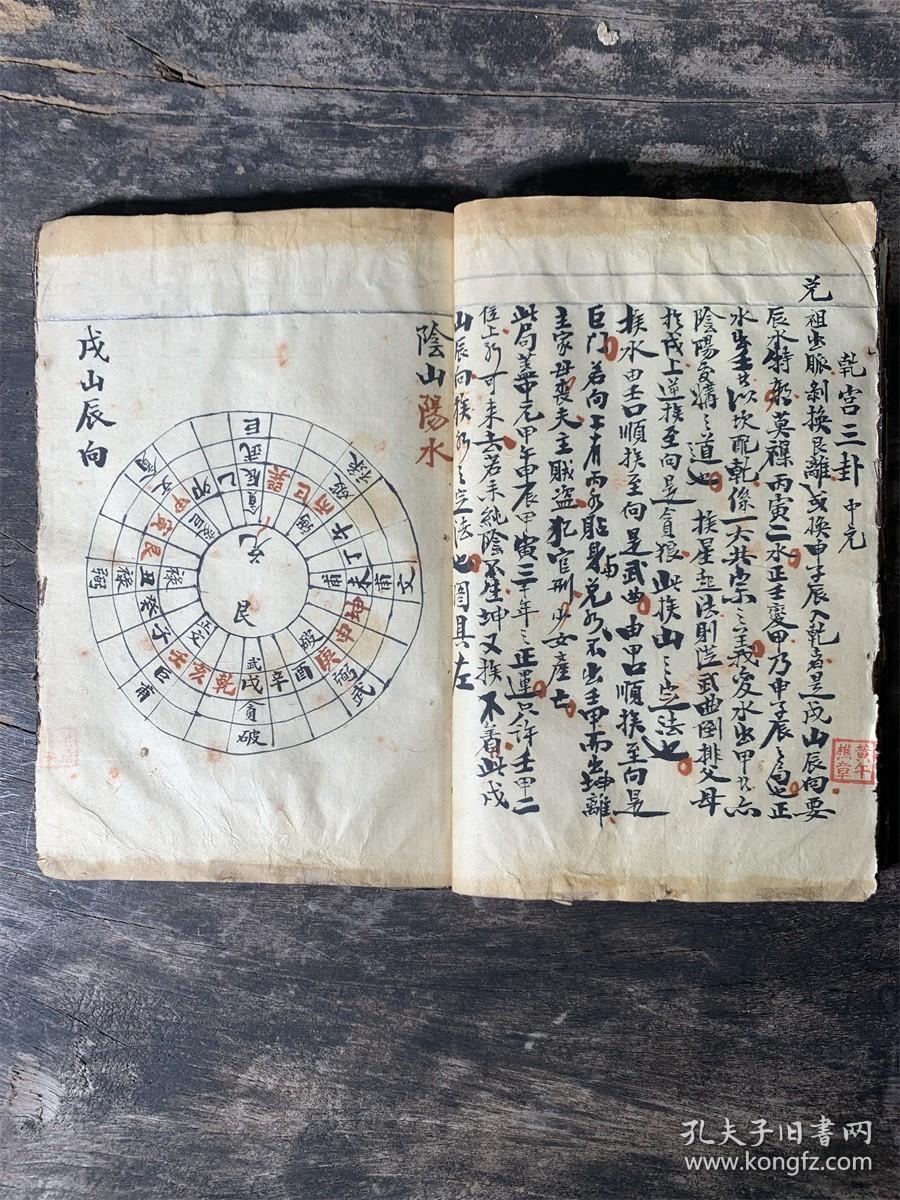 乾宫三卦 中元
兑祖出脈剝換艮離或換申子辰入乾者是戌山辰向要
辰水特朝莫襍丙寅二水正壬變甲乃申子辰之局也正
水出壬其以坎配乾係一大共宗之義變水出甲
陰陽交媾之道也 挨星起法則從武曲倒排父母
於戌上逆挨至向是貪狼此挨山之定法也
挨水由壬口順挨至向是武曲由甲口順挨至向是
巨門若向上有丙水貼身兑水不出壬甲而出坤離
主家母喪夫主賊盜犯官刑少女產亡
此局蓋中元甲午甲辰甲寅三十年之正運只許壬甲二
位上水可来去若未純陰不生坤又挨不着此戌
山辰向挨水之定法也圖具左
陰山陽水
戌山辰向
兑
艮
巨
武
辰
巽
巳
丙
午
丁
未
坤
申
庚
酉
辛
戌
乾
亥
壬
子
癸
丑
艮
寅
甲
卯
乙
文
武
破
貪
武
巨
祿
黄午樵章
孔夫子旧書网
www.kongfz.com